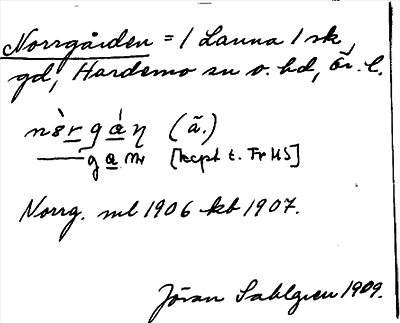 Norrgården = 1 Lanna 1 sk,
gd, Hardemo sn o. hd, Ör. l.
(ã.)
[kcpt t. Fr HS]
Norrg. ml 1906 kb 1907.
Jöran Sahlgren 1909.